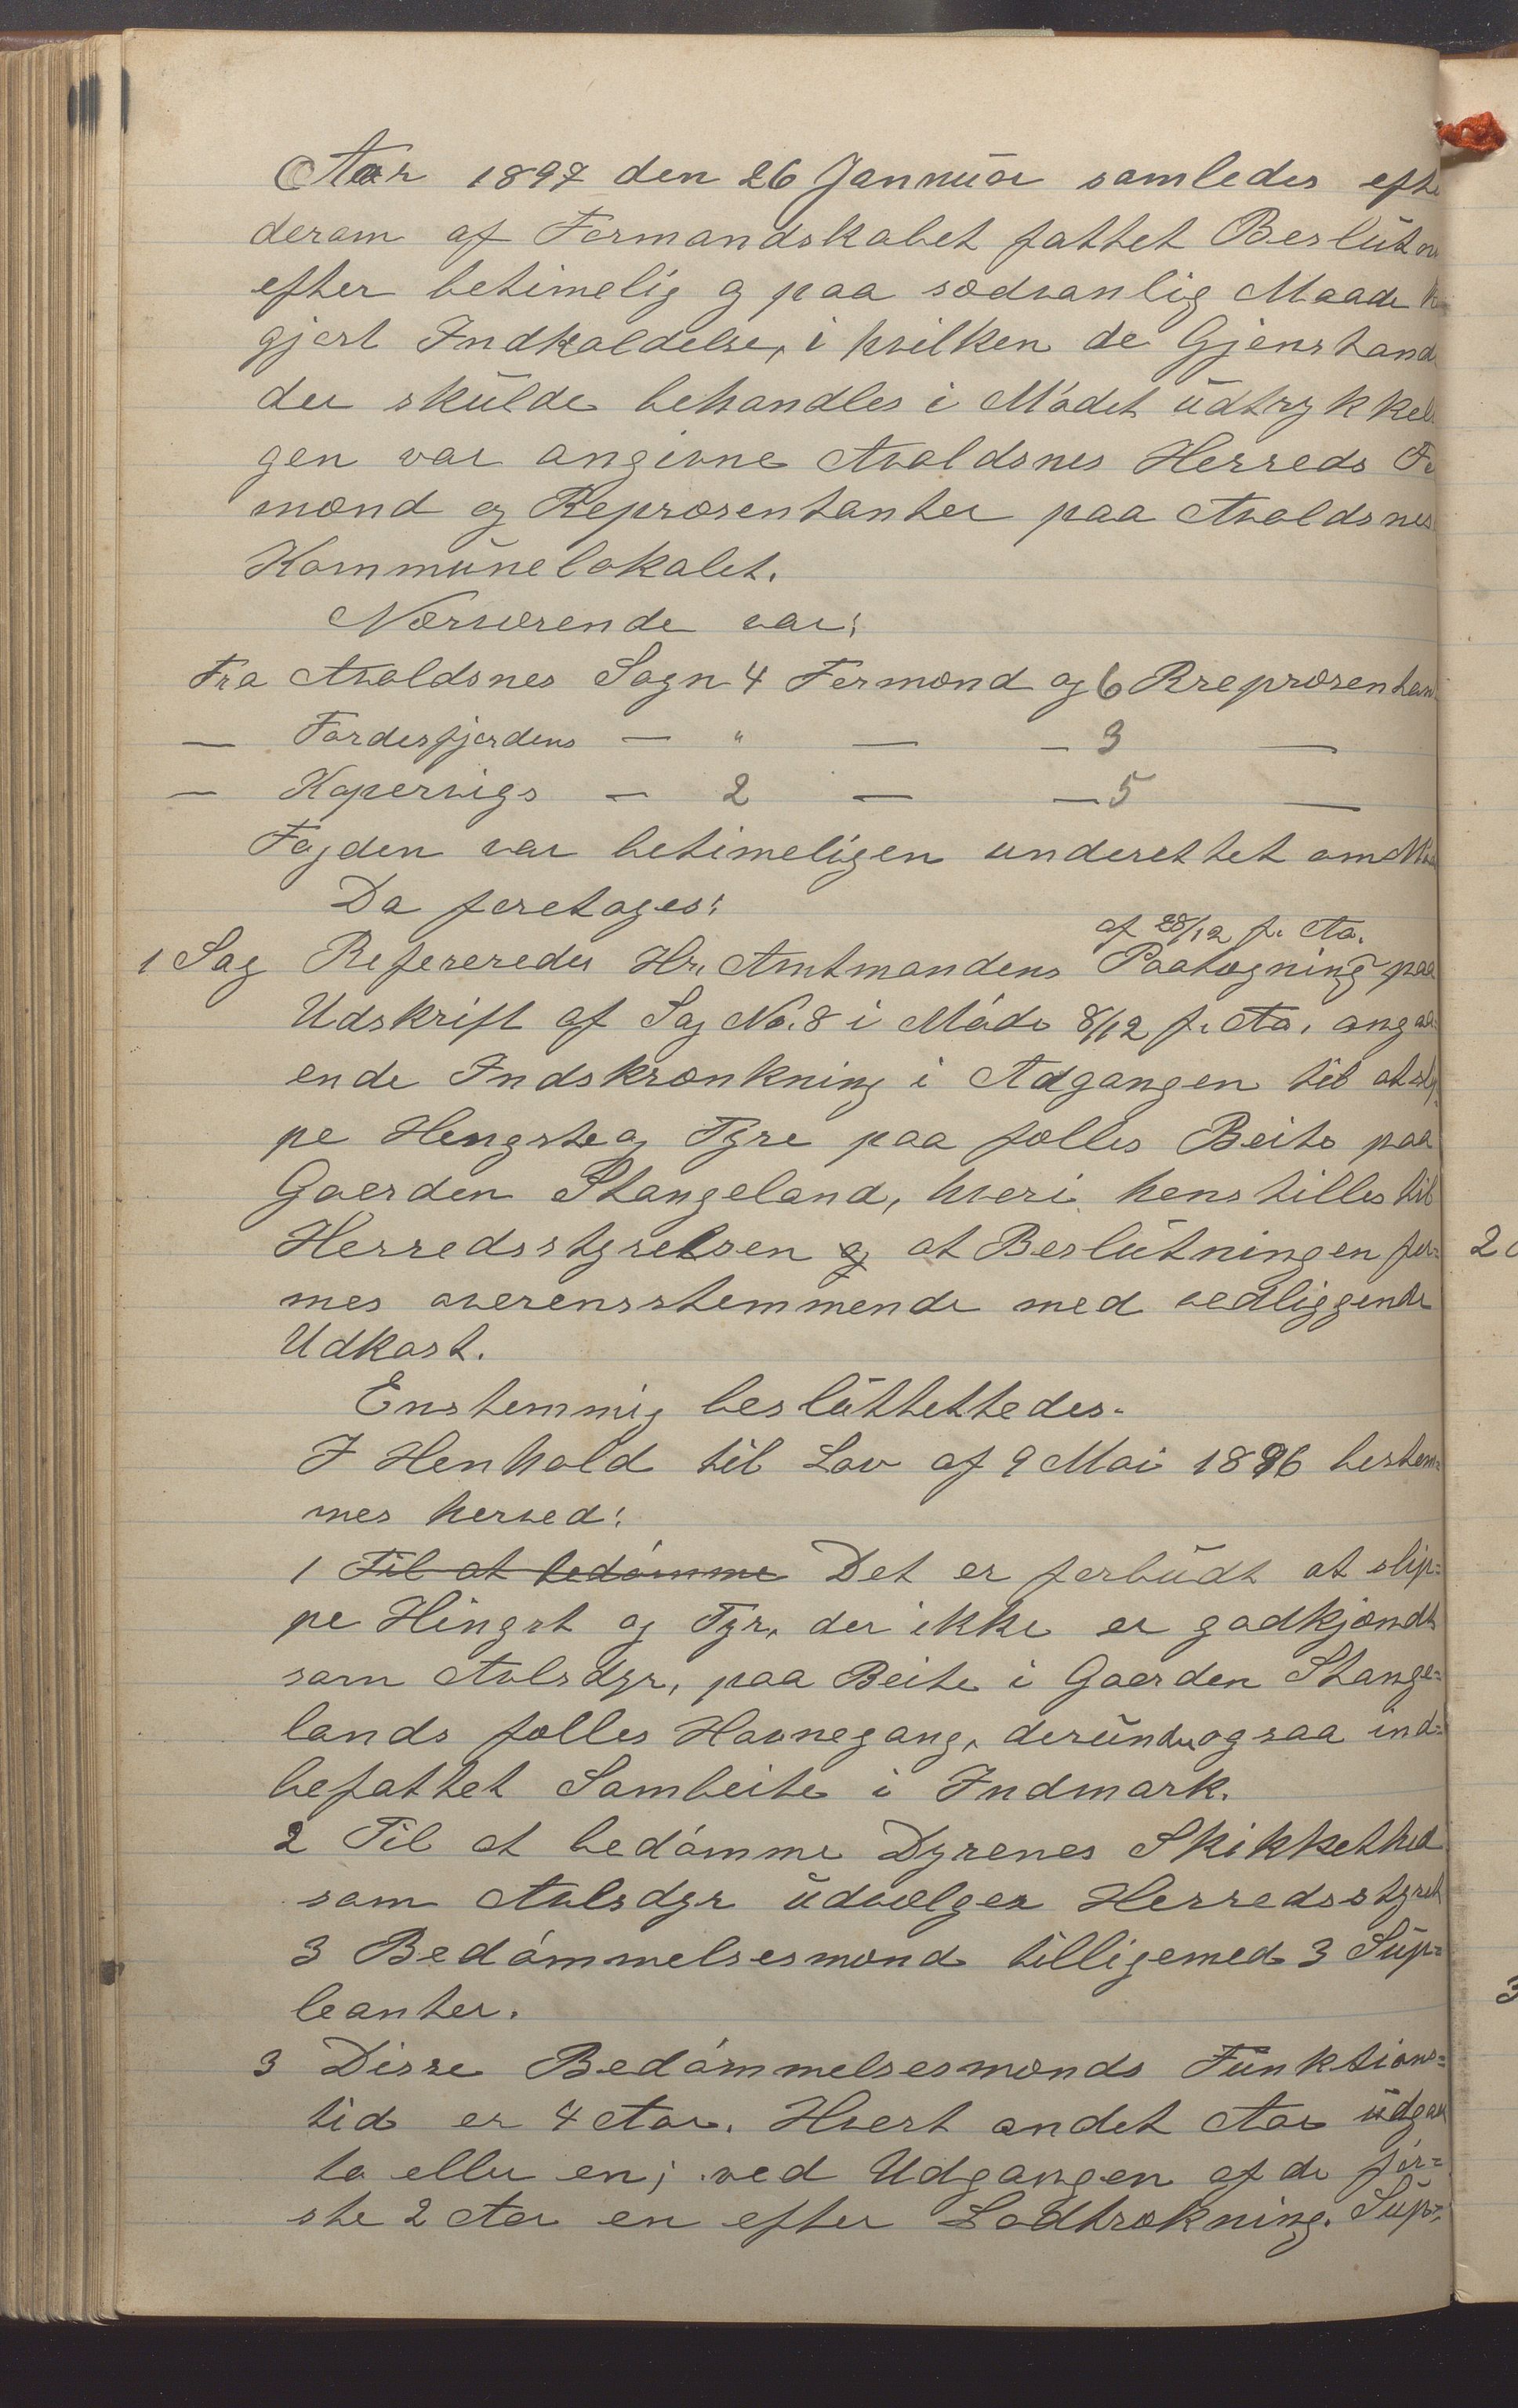 Aar 1897 den 26 Jannuar samledes efte
derom af Formandskabet fattet Beslutn
efter betimelig og paa sædvanlig Maade k
gjort Indkaldelse, i hvilken de Gjenstand
der skulde behandles i Mødet udtrykkel
gen var angivne Avaldsnes Herreds Fo
mænd og Repræsentanter paa Avaldsnes
Kommunelokalet.
Nærværende var:
Fra Avaldsnes Sogn 4 Formænd og 6 Rrepræsentan
— Førdesfjordens — " — — 3 —
— Kopervigs — 2 — — 5 —
Fogden var betimeligen underettet om Mø
Da foretoges:
af 28/12 f. Aa.
1 Sag Refereredes Hr. Amtmandens Paategning paa
Udskrift af Sag No. 8 i Møde 8/12 f. Aa. angaa
ende Indskrænkning i Adgangen til at slip
pe Hengste og Tyre paa fælles Beite paa
Gaarden Stangeland, hvori henstilles til
Herredsstyrelsen og at Beslutningen for=
mes overensstemmende med vedliggende
Udkast.
Enstemmig besluttettedes.
I Henhold til Lov af 9 Mai 1896 bestem=
mes herved:
1 Til at bedømme Det er forbudt at slip=
pe Hingst og Tyr, der ikke er godkjændt
som Avlsdyr, paa Beite i Gaarden Stange=
lands fælles Havnegang, derunder ogsaa ind=
befattet Sambeite i Indmark.
2 Til at bedømme Dyrenes Skikkethed
som Avlsdyr udvælger Herredsstyret
3 Bedømmelsesmænd tilligemed 3 Sup=
leanter.
3 Disse Bedømmelsesmænds Funktions=
tid er 4 Aar. Hvert andet Aar udgaar
to eller en; ved Udgangen af de før=
ste 2 Aar en efter Lodtrækning. Sup=
2
3